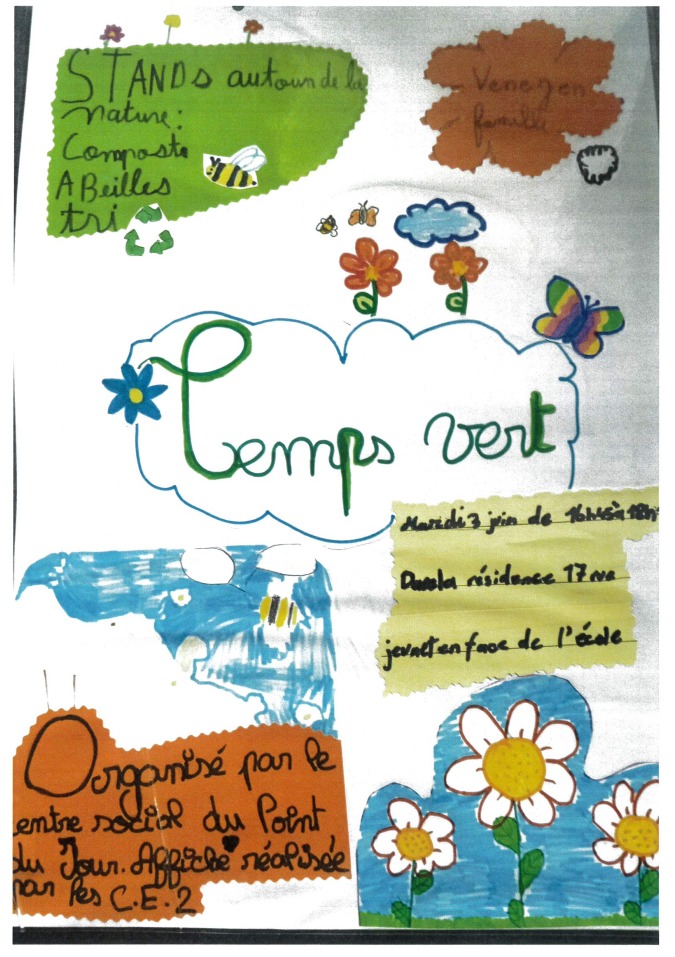 STANDS autour de la
nature:
Composte
ABeilles
tri
Venez en
famille
Temps vert
Mardi 7 juin de 16h45 à 18h
Dans la résidence 17 rue
jeunet en face de l'école
Organisé par le
entre social du Point
du Jour. Affiche réalisée
par les C.E.2